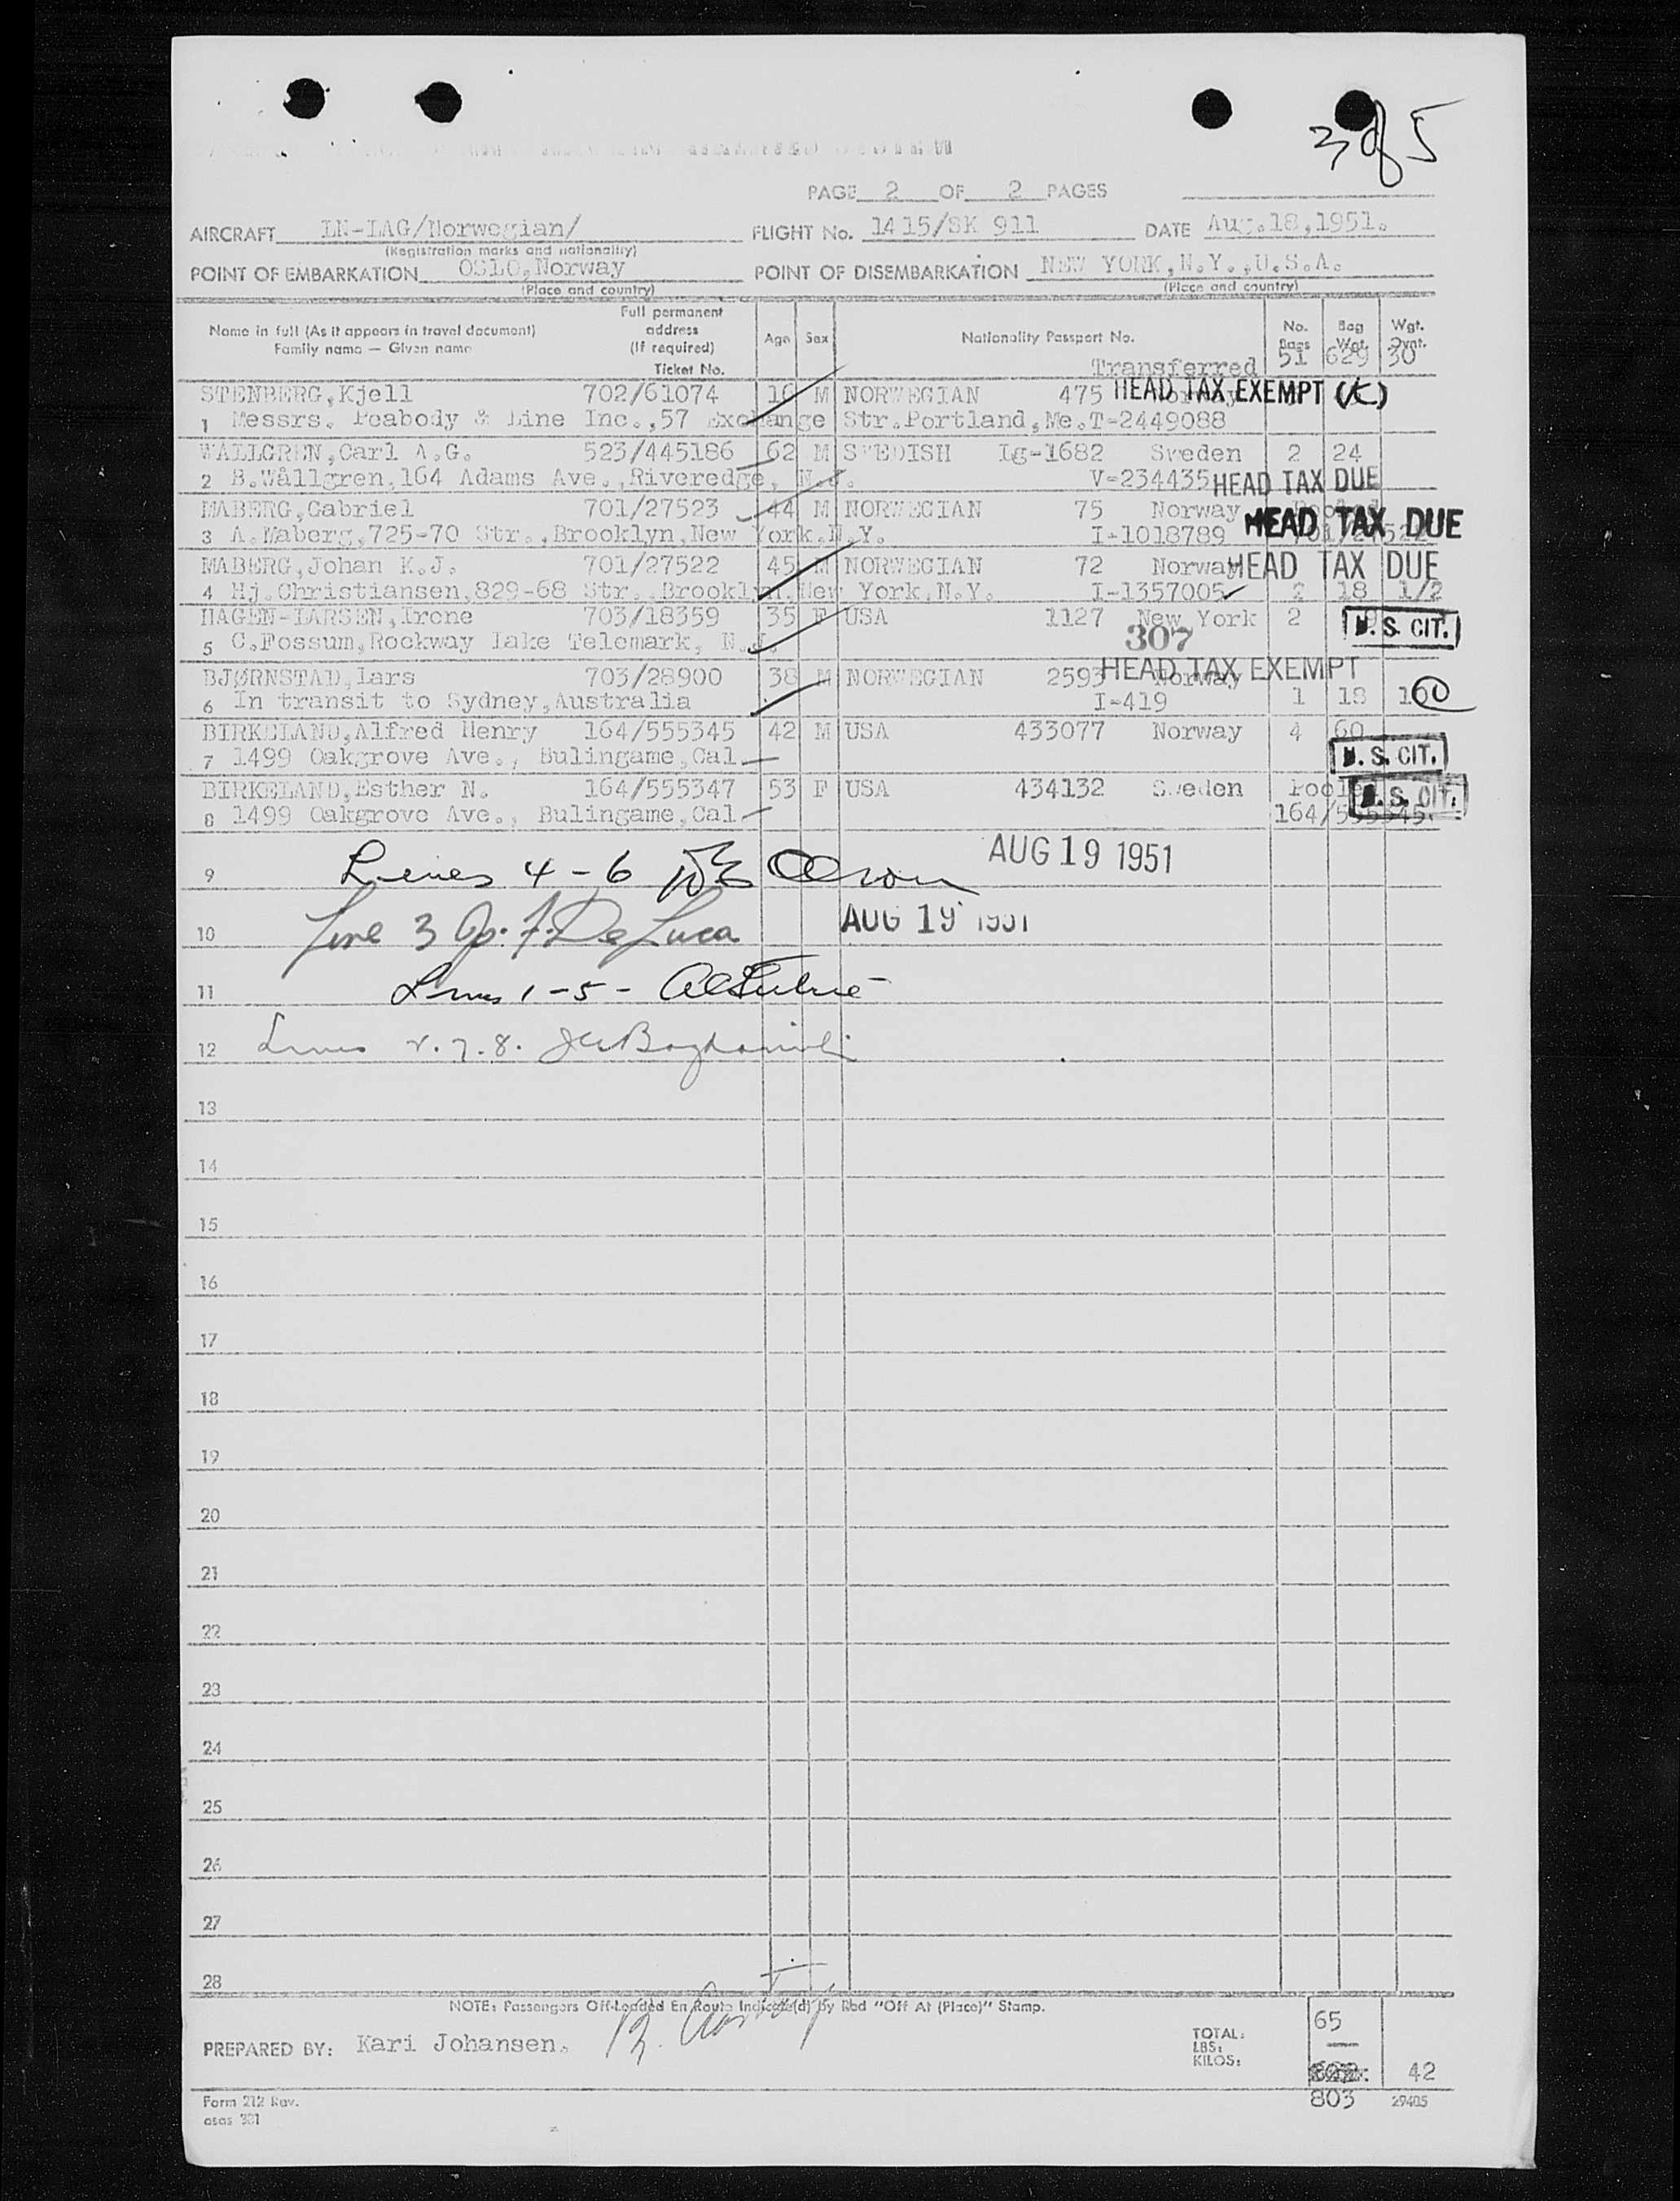 3 of 5
PAGE 2 OF 2 PAGES
AIRCRAFT LN-LAG/Norwegian/ FLIGHT No. 1415/SK 911 DATE Aug.18,1951.
(Registration marks and nationality)
POINT OF EMBARKATION OSLO,Norway POINT OF DISEMBARKATION NEW YORK,N.Y.,U.S.A.
(Place and country) (Place and country)
Name in full (As it appears in travel document) Family name — Given name
Full permanent address (If required) Ticket No.
Age Sex Nationality Passport No. No. Bags Bag Wgt. Wgt. Ovnt.
Transferred 51 629 30
STENBERG,Kjell 702/61074 16 M NORWEGIAN 475 HEAD TAX EXEMPT
1 Messrs. Peabody & Line Inc.,57 Exchange Str.Portland,Me.T-2449088
WALLGREN,Carl A.G. 523/445186 62 M SWEDISH Ig-1682 Sweden 2 24
2 B.Wållgren,164 Adams Ave.,Riveredge, N.J. V-234435 HEAD TAX DUE
MABERG,Gabriel 701/27523 44 M NORWEGIAN 75 Norway
3 A.Maberg,725-70 Str.,Brooklyn,New York.N.Y. I-1018789 HEAD TAX DUE
MABERG,Johan K.J. 701/27522 45 M NORWEGIAN 72 Norway HEAD TAX DUE
4 Hj.Christiansen,829-68 Str. Brooklyn.New York,N.Y. I-1357005 2 18 1/2
HAGEN-LARSEN,Irene 703/18359 35 F USA 1127 New York 2
5 C.Fossum,Rockway Lake Telemark, N.J. 307 U.S. CIT.
BJØRNSTAD,Lars 703/28900 38 M NORWEGIAN 2593 Norway HEAD TAX EXEMPT
6 In transit to Sydney,Australia I-419 1 18 10
BIRKELAND,Alfred Henry 164/555345 42 M USA 433077 Norway 4 60
7 1499 Oakgrove Ave., Bulingame,Cal. U.S. CIT.
BIRKELAND,Esther N. 164/555347 53 F USA 434132 Sweden Pooled U.S. CIT.
8 1499 Oakgrove Ave., Bulingame,Cal. 164/555345.
9 Lines 4-6 Olson AUG 19 1951
10 Line 3 Jos. F. DeLuca AUG 19 1951
11 Lines 1-5-
12 Lines 2.7.8.
13
14
15
16
17
18
19
20
21
22
23
24
25
26
27
28
NOTE: Passengers Off-Loaded En Route Indicate(d) By Red "Off At (Place)" Stamp.
PREPARED BY: Kari Johansen.
TOTAL: 65
LBS:
KILOS: 42
803
Form 212 Rev. 29405
osas 381